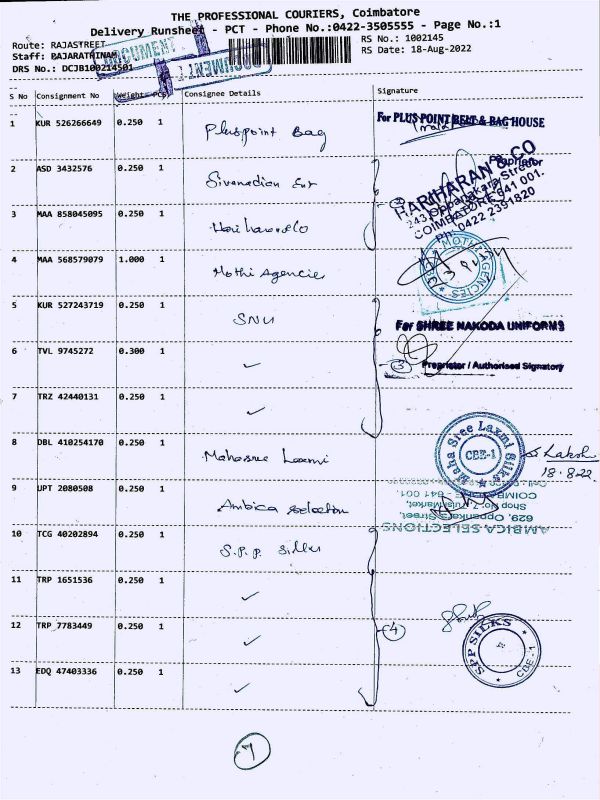 THE PROFESSIONAL COURIERS, Coimbatore
Delivery Runsheet - PCT - Phone No.:0422-3505555 - Page No.:1
Route: RAJASTREET RS No.: 1002145
Staff: RAJARATHINAM RS Date: 18-Aug-2022
DRS No.: DCJB100214501
DOCUMENT
DOCUMENT
S No Consignment No Weight PCS Consignee Details Signature
1 KUR 526266649 0.250 1 Pluspoint Bag
For PLUS POINT BELT & BAG HOUSE
Proprietor
2 ASD 3432576 0.250 1
HARIHARAN & CO
243, Oppanakara Street
COIMBATORE-641 001.
Ph: 0422 2391820
3 MAA 858045095 0.250 1
4 MAA 568579079 1.000 1 Mothi Agencies
MOTHI AGENCIES
5 KUR 527243719 0.250 1 SNU
For SHREE NAKODA UNIFORMS
6 TVL 9745272 0.300 1 ✓ 3
Proprietor / Authorised Signatory
7 TRZ 42440131 0.250 1 ✓
8 DBL 410254170 0.250 1 Mahasree Laxmi
Maha Sree Laxmi Silks
CBE-1
18.8.22
9 UPT 2080508 0.250 1 Ambica selection
AMBICA SELECTIONS
629, Oppankara Street,
Shop No. 7, Tulsi Market,
COIMBATORE - 641 001
10 TCG 40202894 0.250 1 S.P.P. Silks
11 TRP 1651536 0.250 1 ✓
12 TRP 7783449 0.250 1 ✓ 4
SPP SILKS
CBE-1
13 EDQ 47403336 0.250 1 ✓
7